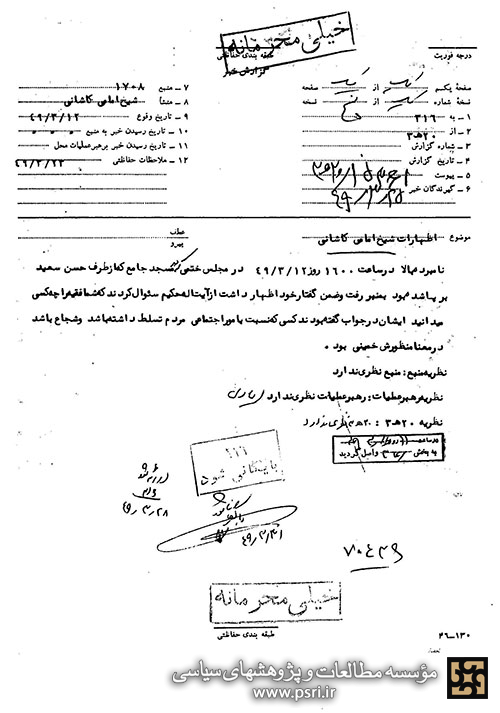 خیلی محرمانه
طبقه بندی حفاظتی
گزارش خبر
درجه فوریت
صفحه یکم از صفحه
نسخه شماره از نسخه
۱ ـ به ۳۱۶
۲ ـ از ۲۰ه‍ ۳
۳ ـ شماره گزارش
۴ ـ تاریخ گزارش
۵ ـ پیوست
۶ ـ گیرندگان خبر
۷ ـ منبع ۱۷۰۸
۸ ـ منشأ شیخ امامی کاشانی
۹ ـ تاریخ وقوع ۴۹/۳/۱۲
۱۰ ـ تاریخ رسیدن خبر به منبع
۱۱ ـ تاریخ رسیدن خبر برهبر عملیات محل
۱۲ ـ ملاحظات حفاظتی
موضوع اظهارات شیخ امامی کاشانی
عطف
پیرو
نامبرده بالا در ساعت ۱۶۰۰ روز ۴۹/۳/۱۲ در مجلس ختمی که در مسجد جامع که از طرف حسن سعید
برپا شده بود بمنبر رفت و ضمن گفتار خود اظهار داشت از آیت اله حکیم سئوال کردند که شما فقیه را چه کسی
میدانید ایشان در جواب گفته بودند کسی که نسبت با مور اجتماعی مردم تسلط داشته باشد و شجاع باشد
در معنا منظورش خمینی بود.
نظریه منبع: منبع نظری ندارد
نظریه رهبر عملیات: رهبر عملیات نظری ندارد
نظریه ۲۰ه‍ ۳ : ۲۰ه‍ ۳ نظری ندارد
در ساعت
به بخش ۳۱۶ واصل گردید
بایگانی شود
۴۹/۳/۲۸
۴۹/۳/۳۱
خیلی محرمانه
طبقه بندی حفاظتی
۴۶-۱۳۰
مؤسسه مطالعات و پژوهشهای سیاسی
www.psri.ir